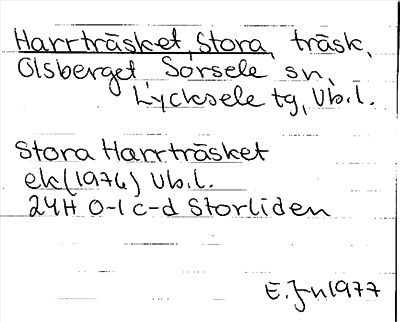 Harrträsket, Stora, träsk,
Olsberget, Sorsele sn,
Lycksele tg, Vb.l.
Stora Harrträsket
ek (1976) Vb.l.
24H 0-1 c-d Storliden
E. Jn 1977